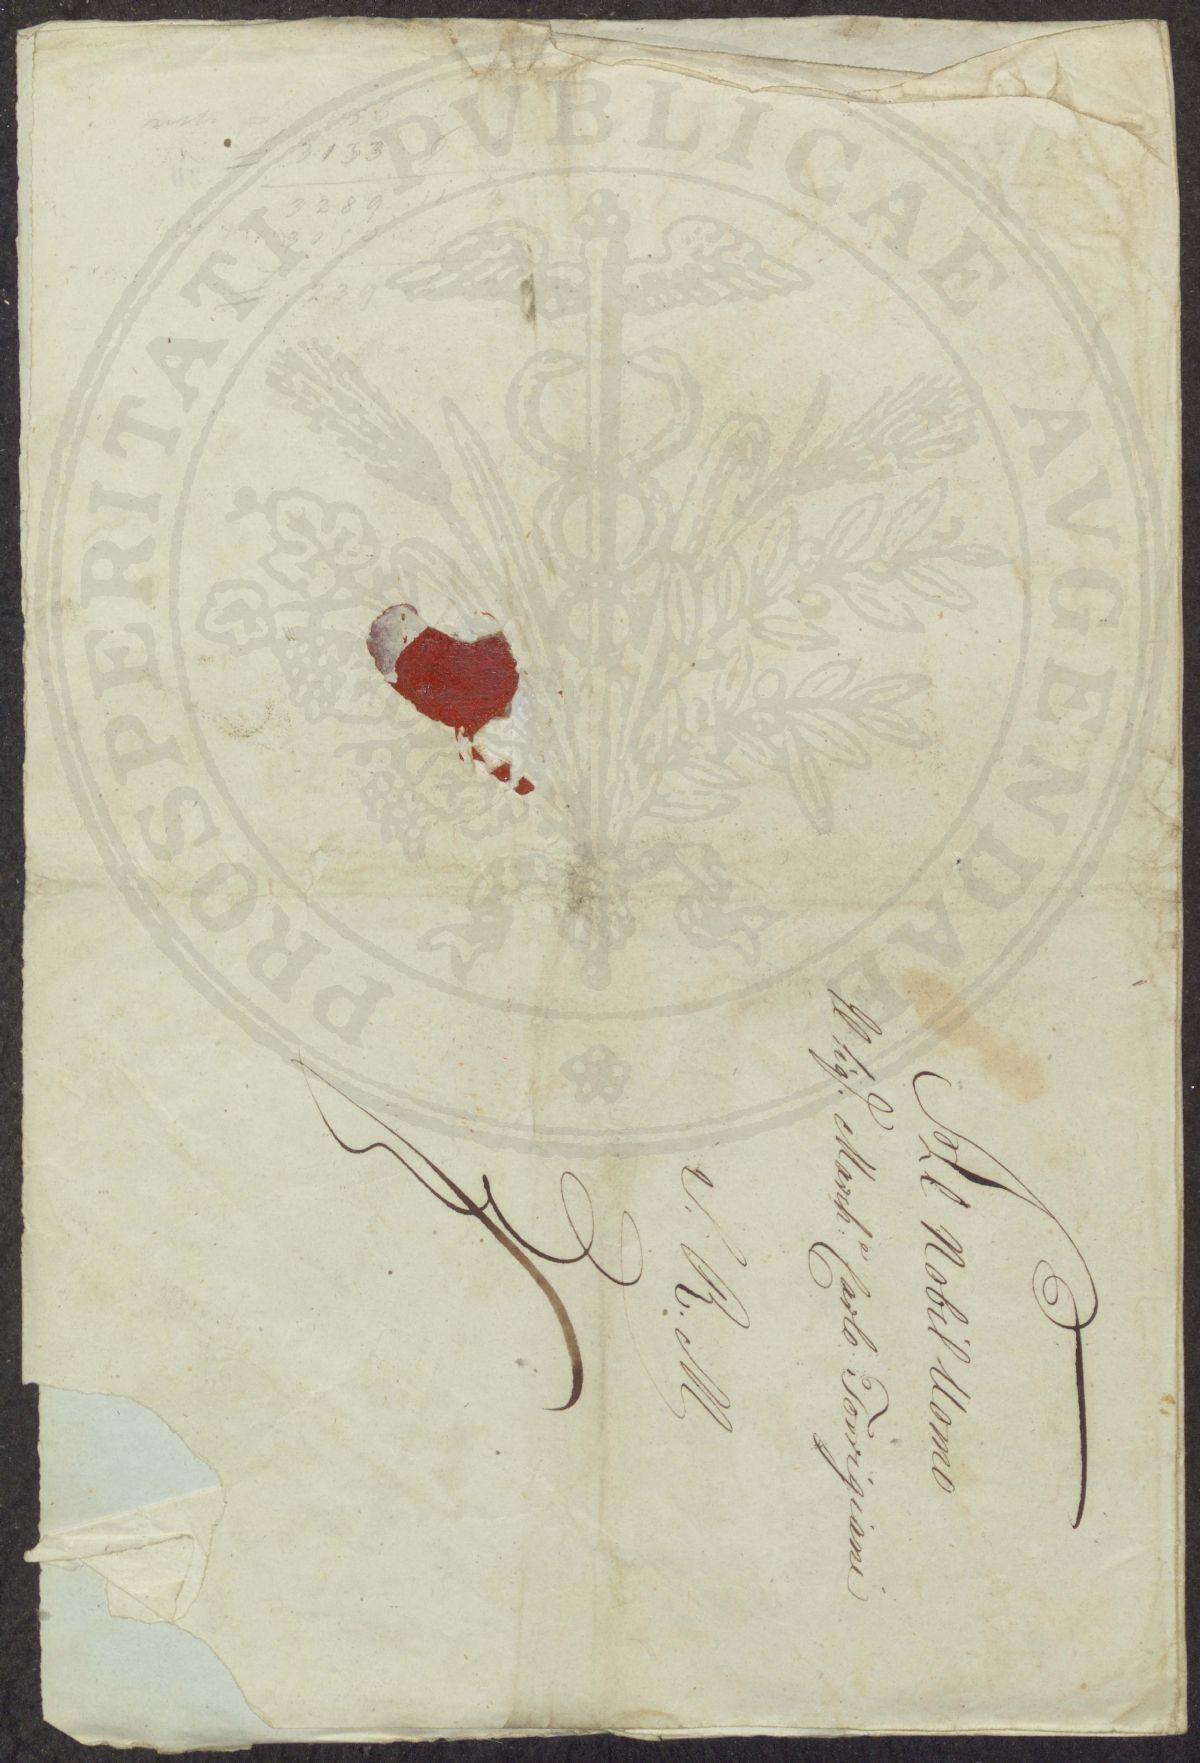 3133
3289
239
Al Nobil Uomo
Sig. March.e Carlo Torrigiani
S. R. M.
PROSPERITATI PVBLICAE AVGENDAE